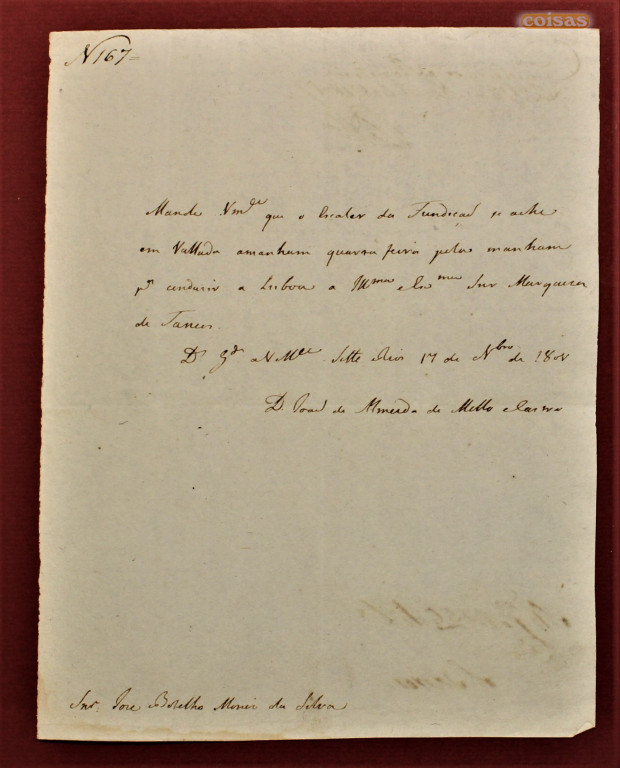 coisas
N 167=
Mande Vm.de que o Escaler da Fundicaõ se ache
em Vallada amanham quarta feira pela manham
p.a conduzir a Lisboa a Ill.ma e Ex.ma Snr.a Marqueza
de Tancos.
D.s G.de a V M.ce Sette Rios 17 de N.bro de
D. Joaõ de Almeida de Mello e Castro
Snr. Joze Botelho Moniz da Silva